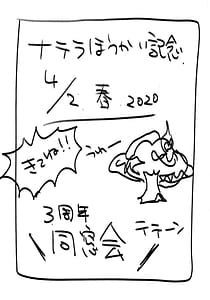 ナテラほうかい記念
4/2 春 2020
きてね!!
うわー
3周年
同窓会
テテーン